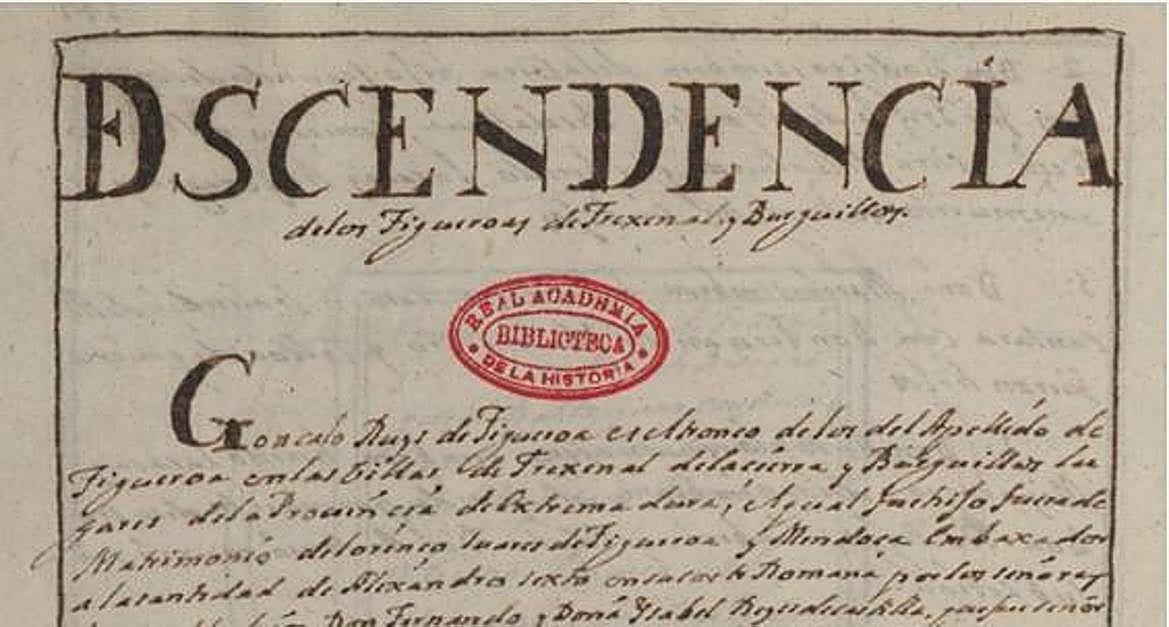 DESCENDENCIA
delos Figueroas de Frexenal, y Burguillos.
REAL ACADEMIA
BIBLIOTECA
DE LA HISTORIA
Goncalo Ruys de Figueroa es eltronco delos del Apellido de
Figueroa enlas Villas de Frexenal delacierra y Burguillos lu
gares dela Provincia de Extremadura, el qual fue hijo fuera de
Matrimonio de lorenco suares de Figueroa y Mendoca Embaxador
a lasantidad de Alexandro sexto en la corte Romana por los senores
Don Fernando y Dona Ysabel Reyes de castilla,